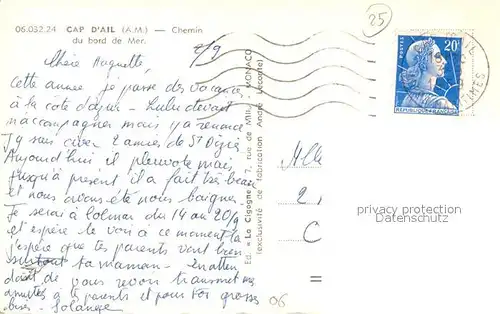 06.032.24 CAP D'AIL (A.M.) — Chemin
du bord de Mer.
25
2/9
Chère Huguette,
Cette année je passe des vacances
à la côte d'azur - Lulu devait
m'accompagner mais y a renoncé
J'y suis avec 2 amies de St Dizier
Aujourd'hui il pleuvote mais
jusqu'à présent il a fait très beau
et nous avons été nous baigner.
Je serai à Colmar du 14 au 20/9
et espère te voir à ce moment là
j'espère que tes parents vont bien
surtout ta maman - En atten
dant de vous revoir transmet mes
amitiés à tes parents et pour toi grosses
bises - Solange
06
Ed. « La Cigogne » 7, rue de Millo - MONACO
(exclusivité de fabrication André Leconte)
POSTES
20F
REPUBLIQUE FRANÇAISE
Mlle
2,
C
protection copyright
Datenschutz